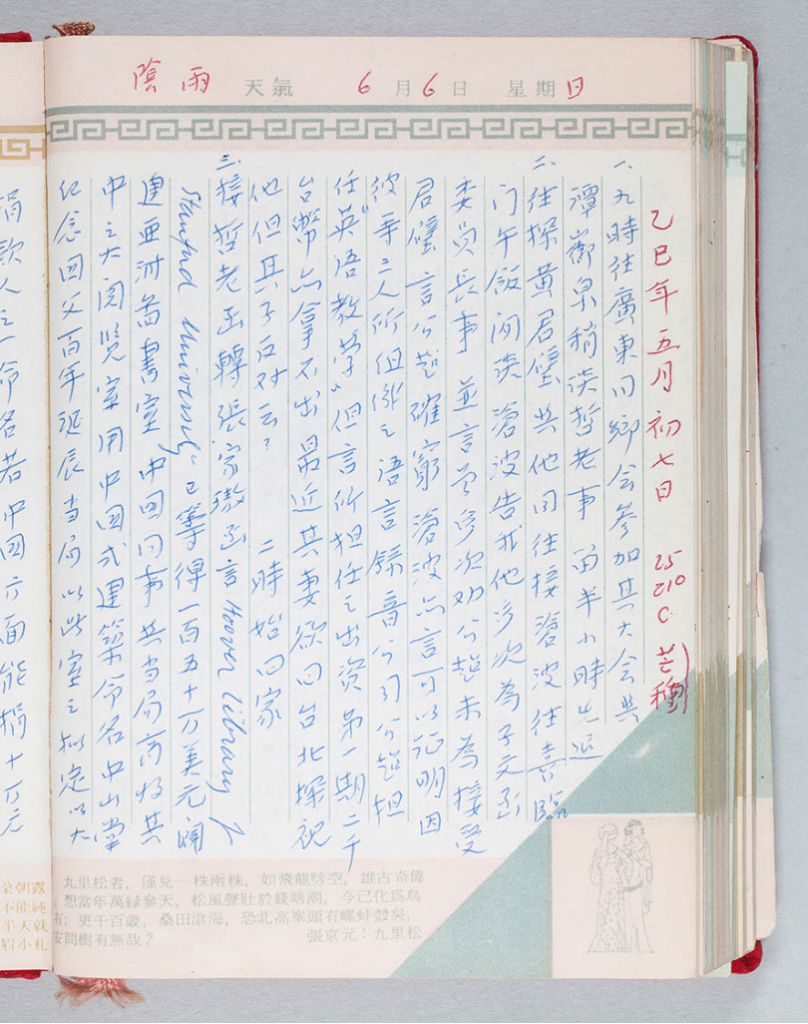 陰雨 天氣 6月6日 星期日
乙巳年五月初七日 25 21°C 芒種
一、九時往廣東同鄉会参加其大会與
譚嶽泉稍談哲老事 留半小時先退
二、往探黃君璧與他同往接滄波往喜臨
门午飯间談滄波告我他多次為子文函
委員長事 並言曾多次劝公超未為接受
君璧言公超確窮滄波亦言可以证明因
彼等三人所组織之語言錄音公司公超担
任"英語教学"但言所担任之出资第一期二千
台幣亦拿不出最近其妻欲回台北探視
他但其子反对云? 二時始回家
三、接哲老函轉張家璈函言Hoover Library 之
Stanford University 已籌得一百五十万美元闢
建亚洲圖書室中国同事與当局商將其
中之大閲覽室用中国式建築命名中山堂
纪念国父百年诞辰当局以此室之拟定以大
捐款人之命名若中国方面能捐十万元
九里松者,僅見一株兩株,如飛龍劈空,雄古奇偉
想當年萬綠參天,松風聲壯於錢塘潮,今已化爲烏
有;更千百歲,桑田滄海,恐北高峯頭有螺蚌殼矣,
安問樹有無哉? 張京元:九里松
朵朝霞
不能純
半天就
眉小札